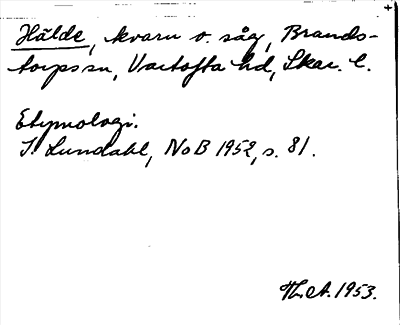 Hälde, kvarn o. såg, Brands-
torps sn, Vartofta hd, Skar. l.
Etymologi.
I. Lundahl, NoB 1952, s. 81.
1953.